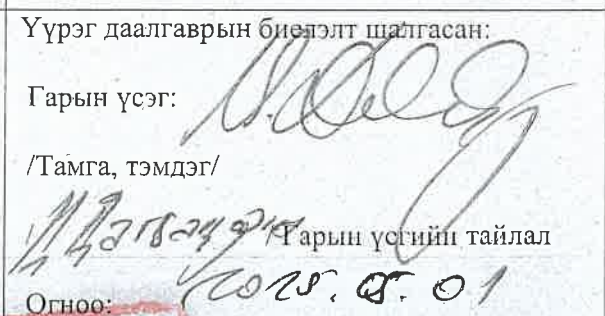 Үүрэг даалгаврын биелэлт шалгасан:
Гарын үсэг:
/Тамга, тэмдэг/
Гарын үсгийн тайлал
Огноо: 2025. 05. 01